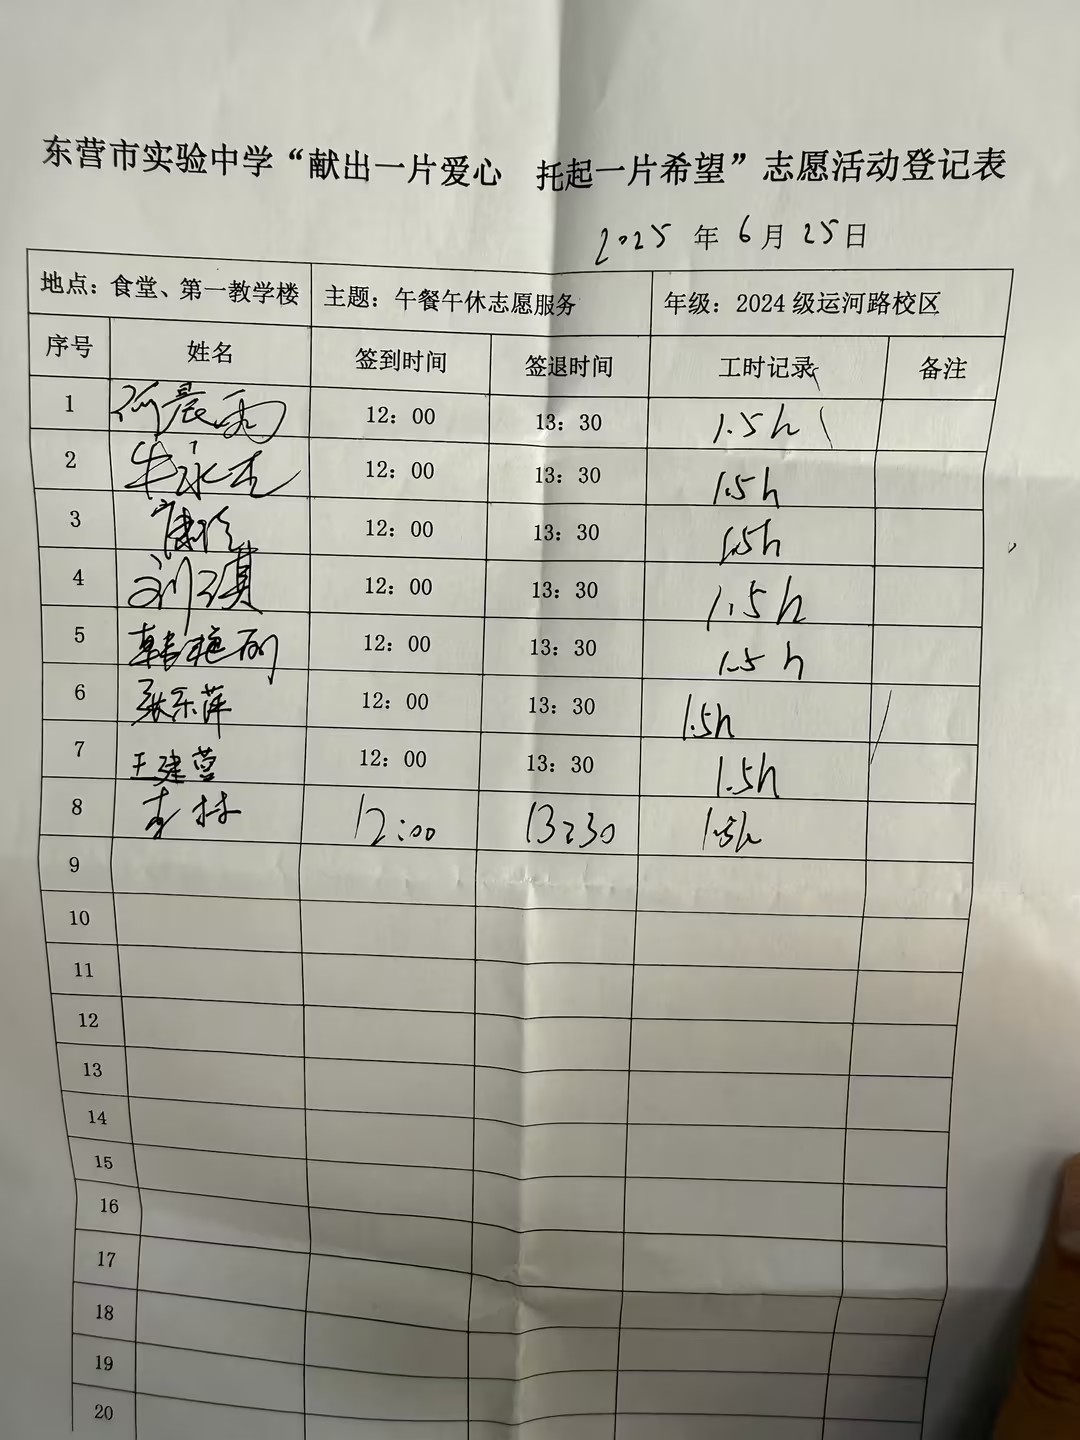 东营市实验中学“献出一片爱心 托起一片希望”志愿活动登记表
2025 年 6 月 25 日
地点：食堂、第一教学楼 主题：午餐午休志愿服务 年级：2024 级运河路校区
序号 姓名 签到时间 签退时间 工时记录 备注
1 晨雨 12：00 13：30 1.5h
2 牛永杰 12：00 13：30 1.5h
3 12：00 13：30 1.5h
4 刘琪 12：00 13：30 1.5h
5 韩艳丽 12：00 13：30 1.5h
6 张乐萍 12：00 13：30 1.5h
7 王建营 12：00 13：30 1.5h
8 李林 12:00 13:30 1.5h
9
10
11
12
13
14
15
16
17
18
19
20